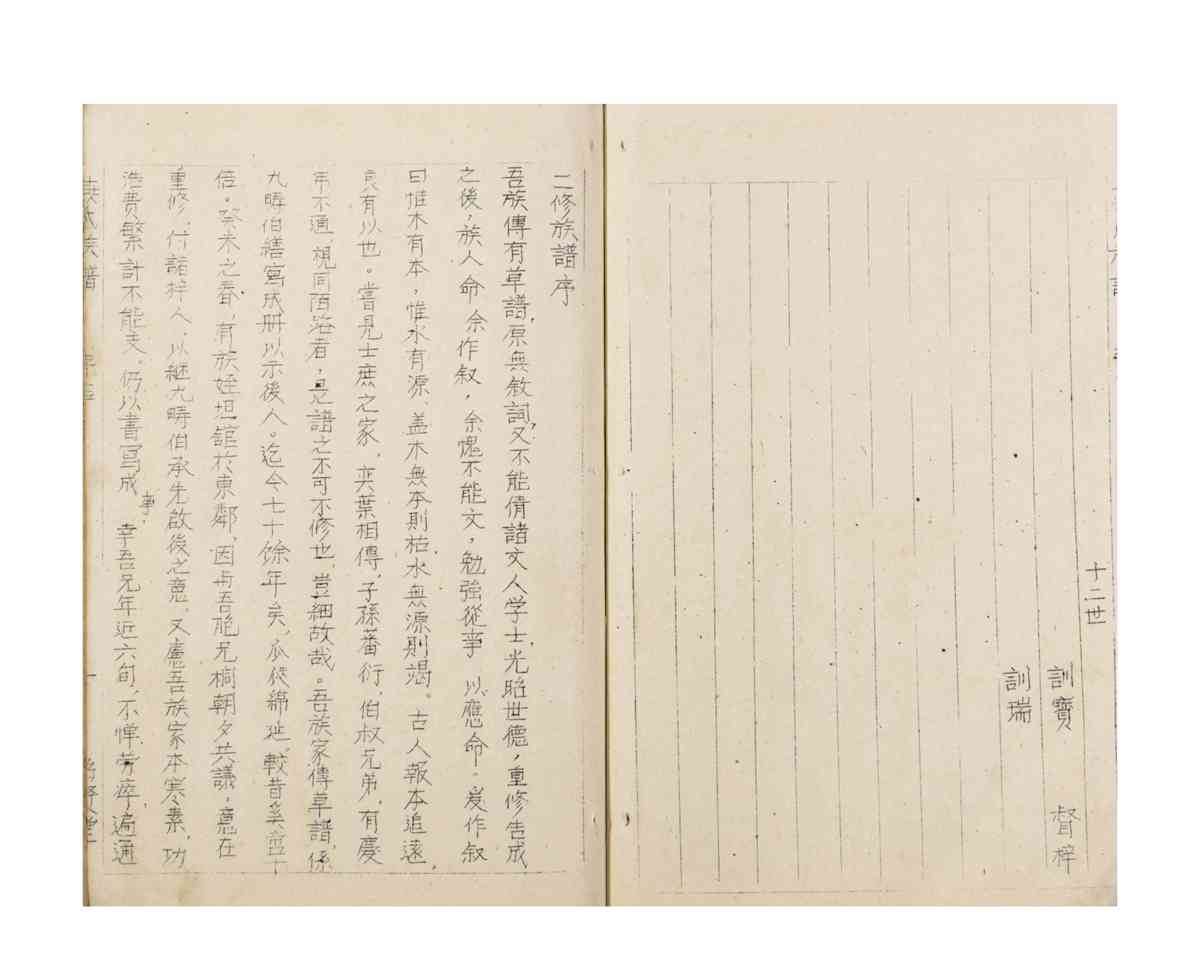 十二世
訓寶 督梓
訓瑞
二修族譜序
吾族傳有草譜，原無敘詞，又不能倩諸文人学士，光昭世德，重修告成
之後，族人命余作叙，余愧不能文，勉強從事，以應命。爰作叙
曰惟木有本，惟水有源、盖木無本則枯，水無源則竭。古人報本追遠，
良有以也。嘗見士庶之家，奕葉相傳，子孫蕃衍，伯叔兄弟，有慶
年不通，視同陌路者，是譜之不可不修也，豈細故哉。吾族家傳草譜，係
九疇伯繕寫成册以示後人。迄今七十馀年矣，瓜瓞綿延，較昔奚啻十
倍。癸未之春，有族姪坦舘於東鄰，因与吾胞兄桐朝夕共議，意在
重修，付諸梓人，以継九疇伯承先啟後之意，又慮吾族家本寒素，功
浩費繁，計不能支。仍以書寫成事，幸吾兄年近六旬，不憚劳瘁，遍通
氏族譜